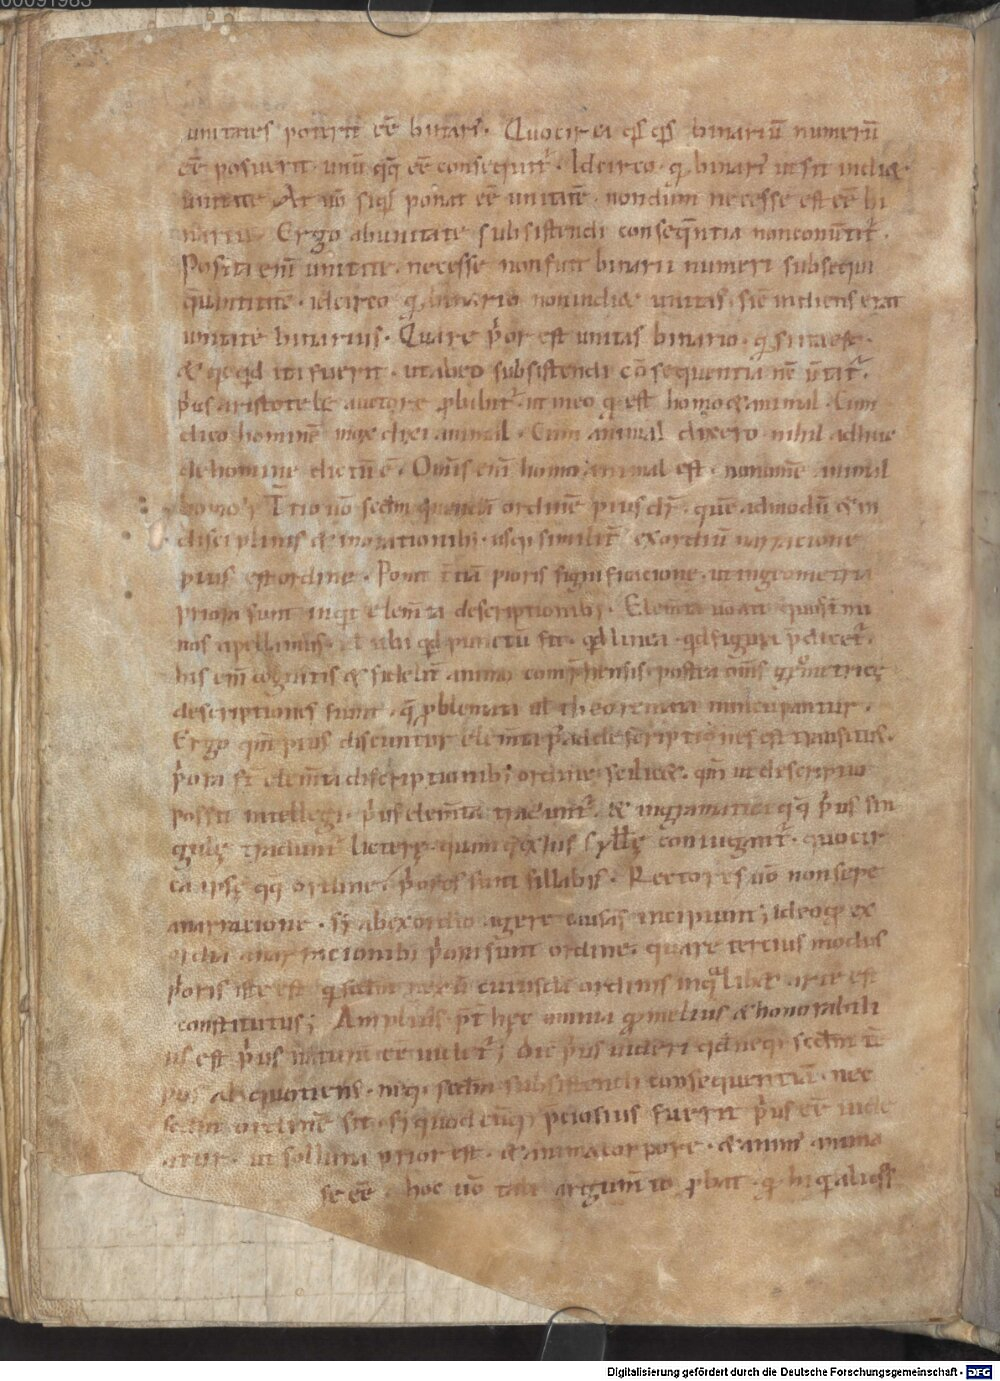 unitates poterit eē binari. Quocirca qd qd binariū numerū
eē posuerit. unū qq eē consequit'. Idcirco. q binari ut sit indiget
unitate At uō siqs ponat eē unitatē. nondum necesse est eē bi
nariū. Ergo abunitate subsistendi conseq̄ntia nonconūtit'.
Posita eni unitate. necesse nonfuit binarii numeri subsequi
quantitatē. idcirco q binario nonindiget unitas. sic indigens erat
unitate binarius. Quare p'or est unitas binario. q si ita est.
& qcqd ita fuerit. utabeo subsistendi cōsequentia nē ūtat'.
p'us aristotele auctore pbabit'. ut in eo q est homo & animal. Cum
dico hominē mox dixi animal. Cum animal dixero nihil adhuc
dehomine dictū ē. Omis eni homo animal est. nonomē animal
homo; Tertio uō scdm quendā ordinē prius dr̄. quē admodū & in
disciplinis & inorationib; usq similit' exordiū narracione
prius est ordine. Ponit t'tiā prioris significacionē. ut ingeometria
priora sunt inqt elem̄ta descriptionib;. Elem̄ta uocat quos t'mi
nos apellamus. id ubi qd punctū sit. qd linea. qd figura p'dicet'.
his eni cognitis & fidelit' animo comp̄hensis. postea om̄is geometricę
descriptiones sunt. q̄ pblemata ul theoremata nuncupantur.
Ergo qm prius discuntur elem̄ta p'ad descriptiones est transitus.
p'ora st elem̄ta discriptionib; ordine scilicet. qm ut descriptio
possit intellegi. p'us elem̄ta tradunt'. & ingramatica qq p'us sin
gulę tradunt' litterę. quam ex his syllę coniungant'. quocir
ca ipsę qq ordine p'ores sunt sillabis. Rectores uō nonsepe
anarracione. s; abexordio agere causas incipiunt; ideoq ex
ordia anarracionib; p'ora sunt ordine. quare tercius modus
p'oris iste est q scdm nexū cuiusda ordinis inqlibet arte est
constitutus; Amplius. p̄t hęc omnia q melius & honorabili
us est p'us natura eē uidet'; Dic p'us uideri qd neq; scdm tē
pus aliquotiens. neq; scdm subsistendi consequentiā. nec
scdm ordinē sit. s; quod cūq; p̄ciosius fuerit p'us eē uide
atur. ut sol luna prior est. & anima corpore. & animi anima
se eē hoc uō tali argum̄to pbat. q hi q aliqs
Digitalisierung gefördert durch die Deutsche Forschungsgemeinschaft · DFG